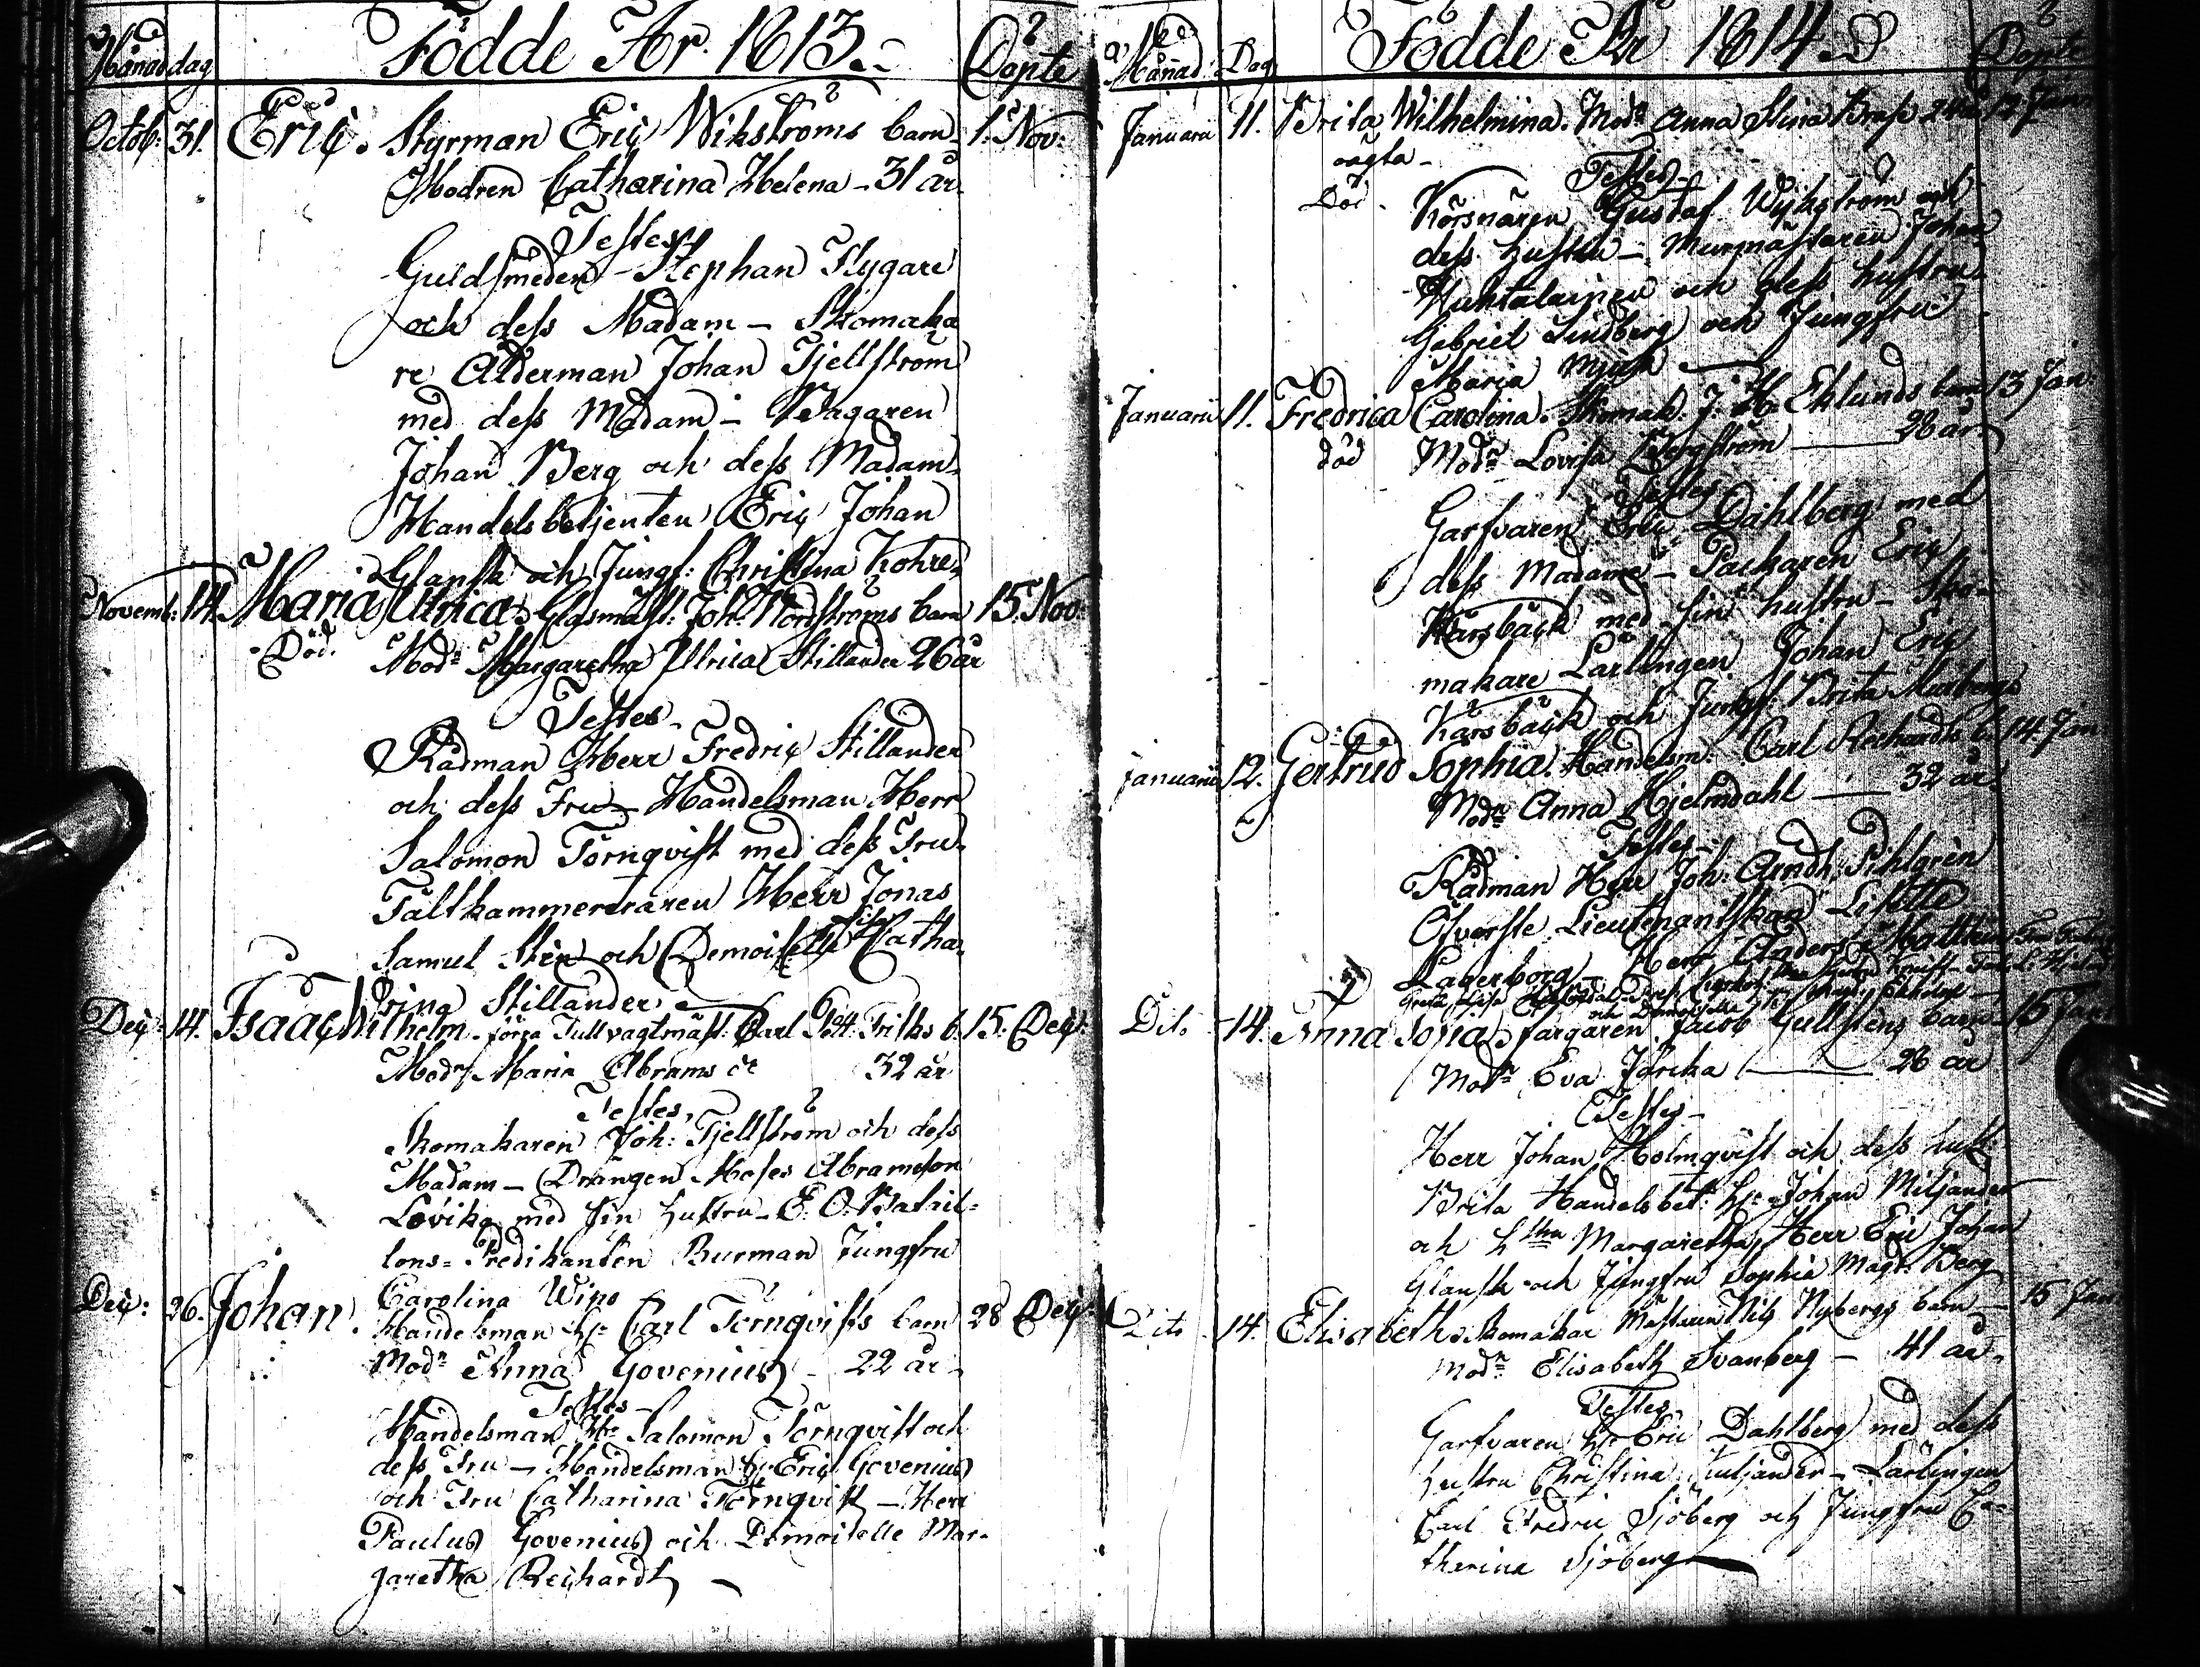 Månad dag Födde År. 1813. Döpte
Octob: 31. Eric. Styrman Eric Wikströms barn 1. Nov:
Modren Catharina Helena - 31 år.
Testes
Guldsmeden - Stephan Flygare
och dess Madam - Skomaka
re Ålderman Johan Tjellström
med dess Madam - Bagaren
Johan Berg och dess Madam.
Handelsbetjenten Eric Johan
Glansk och Jungf: Christina Kohre
Novemb: 14. Maria Ulrica. Glasmäst: Joh: Nordströms barn 15. Nov:
Död. Modn Margaretha Ulrica Stillander 26 år
Testes -
Rådman Herr Fredric Stillander
och dess Fru - Handelsman Herr
Salomon Törnqvist med dess Fru -
Fältkammereraren Herr Jonas
Samuel Sten och Demoiselle Catha
rina Stillander
Dec: 14. Isaac Wilhelm - förra Tullvagtmäst: Carl Friths b. 15. Dec:
Modn Maria Abrams dr 32 år
Testes.
Skomakaren Joh: Tjellström och dess
Madam - Drängen Moses Abramson
Lovika med sin hustru - E. O. Batail=
lons= Predikanten Burman Jungfru
Carolina Wipo
Dec: 26. Johan. Handelsman Hr Carl Törnqvists barn 28 Dec:
Modn Anna Govenius - 22 år -
Testes -
Handelsman Hr Salomon Törnqvist och
dess Fru - Handelsman Hr Eric Govenius
och Fru Catharina Törnqvist - Herr
Paulus Govenius och Demoiselle Mar-
garetha Reichardt -
Månad: Dag Födde År 1814. Döpte
Januarii 11. Brita Wilhelmina. Modn Anna Stina 12 Jan:
oägta -
Testes -
Död. Körsnären Gustaf Wijkström och
dess hustru - Murmästaren Johan
Huhtalainen och dess hustru
Gabriel Lindberg och Jungfru
Maria
Januarii 11. Fredrica Carolina. Skomak: J: H: Eklunds barn 13 Jan:
död Modn Lovisa Bergström 28 år
Testes
Garfvaren Eric Dahlberg med
dess Madame - Packaren Eric
Karsbäck med sin hustru - Sko-
makare Lärlingen Johan Eric
Karsbäck och Jungf: Brita
Januarii 12. Gertrud Sophia. Handelsm: Carl Reichardts b. 14. Jan
Modn Anna Hjelmdahl 32 år.
Testes -
Rådman Herr Joh: Arndt Pihlgren
Öfverste Lieutenantskan Lisette
Lagerborg - Herr Anders
Dito 14. Anna Sofia. färgaren Jacob Gullstens barn 15 Jan
Modn Eva Jöricka 28 år
Testes -
Herr Johan Holmqvist och dess hust:
Brita Handelsbet: Hr Johan Miljander
och hstru Margaretha, Herr Eric Johan
Glansk och Jungfru Sophia Magd: Berg
Dito 14. Elisabeth. Skomakar Mästaren Nils Nybergs barn 15 Jan:
Modn Elisabeth Svanberg - 41 år.
Testes
Garfvaren Hr Eric Dahlberg med dess
hustru Christina - Lärlingen
Carl Fredric Sjöberg och Jungfru Ca-
tharina Sjöberg